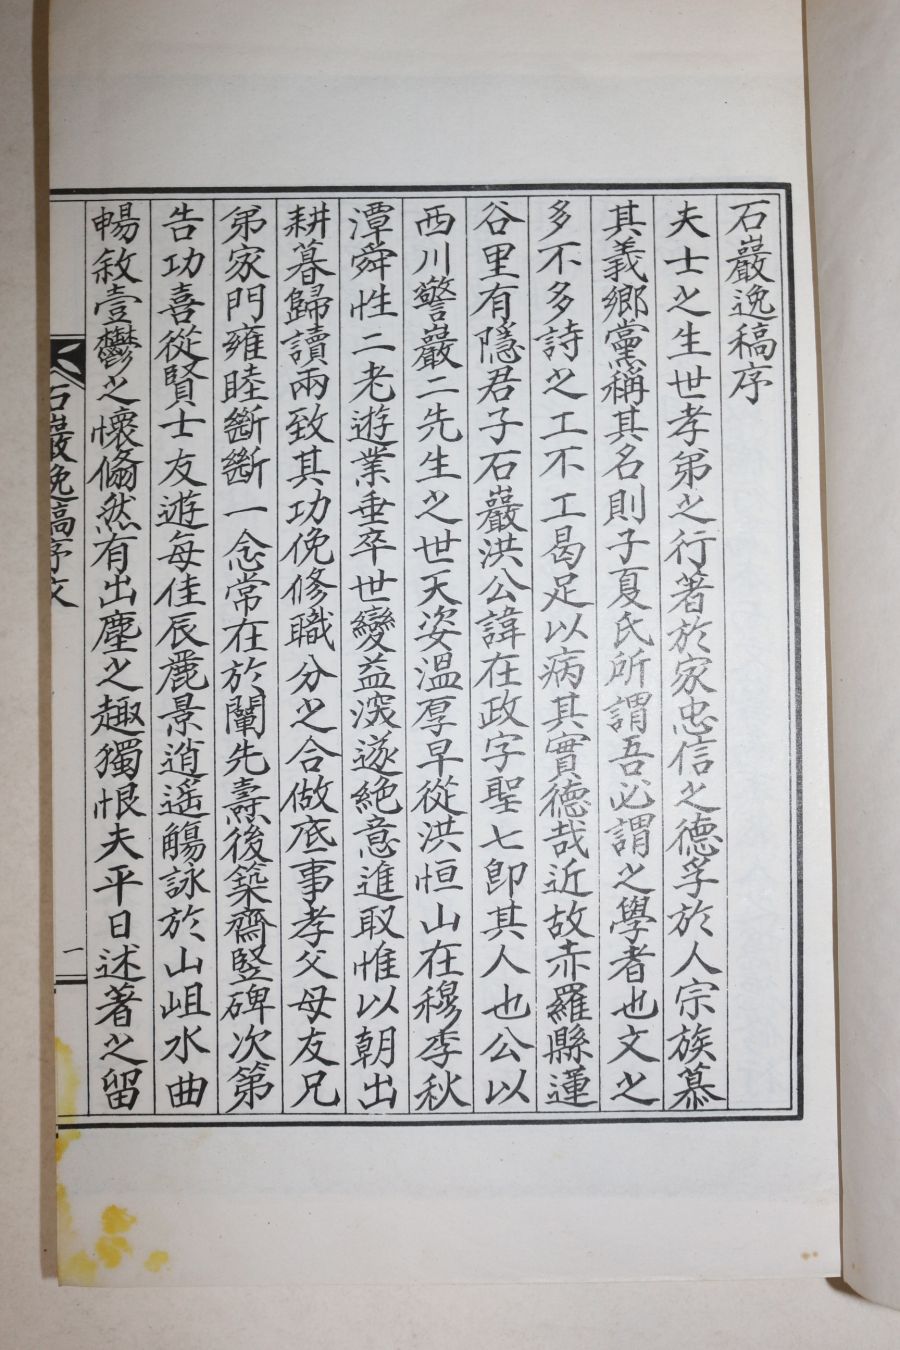 石巖逸稿序
夫士之生世孝弟之行著於家忠信之德孚於人宗族慕
其義鄕黨稱其名則子夏氏所謂吾必謂之學者也文之
多不多詩之工不工曷足以病其實德哉近故赤羅縣蓮
谷里有隱君子石巖洪公諱在政字聖七卽其人也公以
西川警巖二先生之世天姿溫厚早從洪恒山在穆李秋
潭舜性二老遊業垂卒世變益深遂絶意進取惟以朝出
耕暮歸讀兩致其功俛修職分之合做底事孝父母友兄
弟家門雍睦斷斷一念常在於闡先壽後築齋竪碑次第
告功喜從賢士友遊每佳辰麗景逍遙觴詠於山岨水曲
暢敘壹鬱之懷翛然有出塵之趣獨恨夫平日述著之留
石巖逸稿序文
一